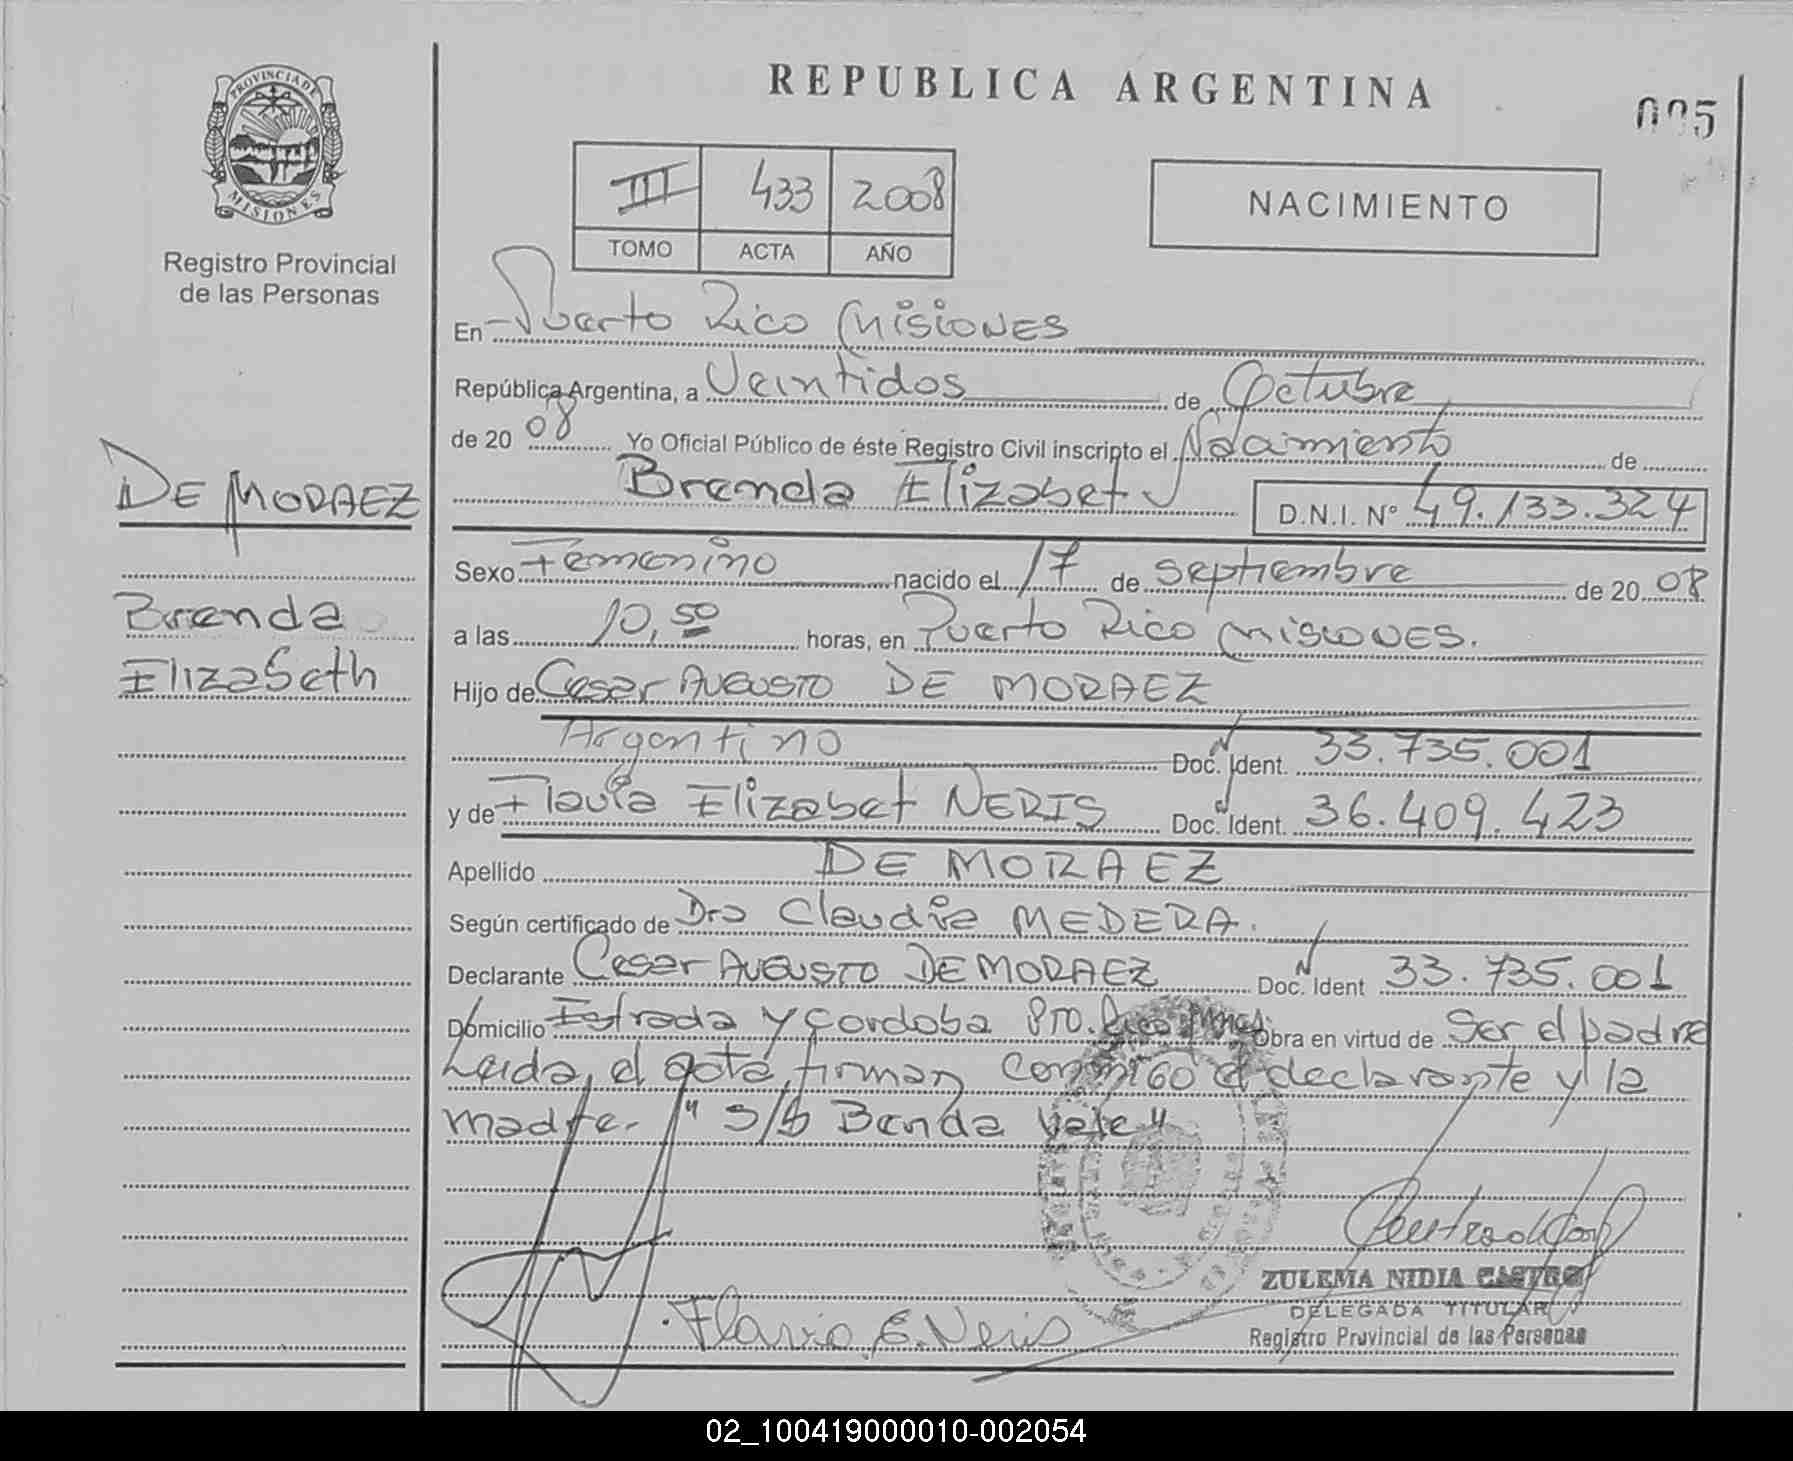 REPUBLICA ARGENTINA
005
PROVINCIA DE
MISIONES
Registro Provincial
de las Personas
III 433 2008
TOMO ACTA AÑO
NACIMIENTO
En Puerto Rico Misiones
República Argentina, a Veintidos de Octubre
de 20 08 Yo Oficial Público de éste Registro Civil inscripto el Nacimiento de
Brenda Elizabet D.N.I. Nº 49.133.324
DE MORAEZ
Brenda
Elizabeth
Sexo Femenino nacido el 17 de septiembre de 20 08
a las 10,50 horas, en Puerto Rico Misiones.
Hijo de Cesar Augusto DE MORAEZ
Argentino Doc. Ident. 33.735.001
y de Flavia Elizabet NERIS Doc. Ident. 36.409.423
Apellido DE MORAEZ
Según certificado de Dra Claudia MEDERA.
Declarante Cesar Augusto DE MORAEZ Doc. Ident 33.735.001
Domicilio Estrada y Cordoba Pto. Rico Mnes. Obra en virtud de Ser el padre
Leida el acta, firman conmigo el declarante y la
madre. "S/b Benda Vale"
Flavia E. Neris
ZULEMA NIDIA CASTRO
DELEGADA TITULAR
Registro Provincial de las Personas
02_100419000010-002054